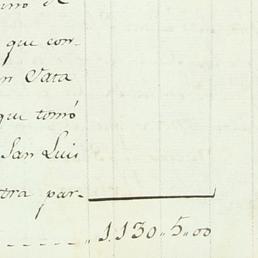 que con-
n Vata
que tomó
San Luis
tra par-
1.130,,5,,00